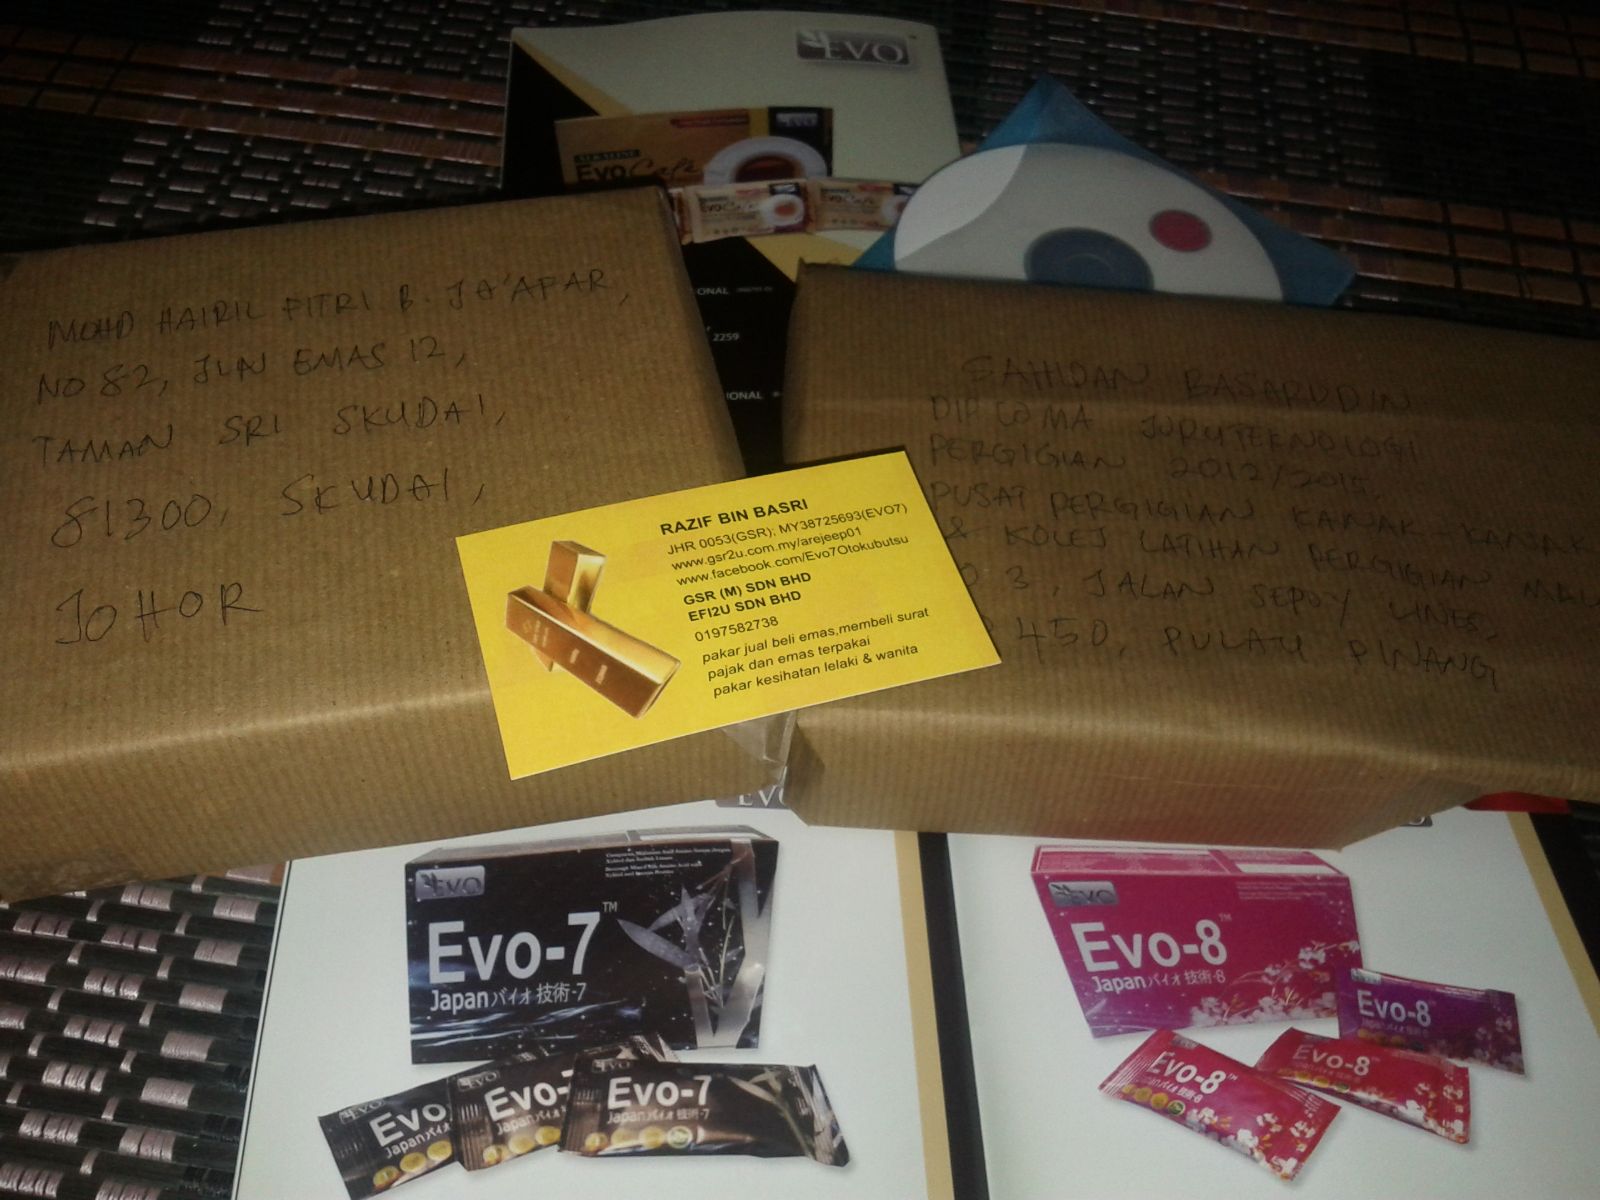 EVO
ALKALINE
Evo Cafe
EVO
Evo Cafe
Evo Cafe
MOHD HAIRIL FITRI B. JA'AFAR,
NO 82, JLN EMAS 12,
TAMAN SRI SKUDAI,
81300, SKUDAI,
JOHOR
2259
SAHIDAN BASARUDIN
DIPLOMA JURUTEKNOLOGI
PERGIGIAN 2012/2015,
PUSAT PERGIGIAN KANAK-KANAK
& KOLEJ LATIHAN PERGIGIAN
3, JALAN SEPOY LINES,
450, PULAU PINANG
RAZIF BIN BASRI
JHR 0053(GSR), MY38725693(EVO7)
www.gsr2u.com.my/arejeep01
www.facebook.com/Evo7Otokubutsu
GSR (M) SDN BHD
EFI2U SDN BHD
0197582738
pakar jual beli emas,membeli surat
pajak dan emas terpakai
pakar kesihatan lelaki & wanita
EVO
Evo-7™
Japanバイオ技術-7
Evo
Japanバイ
Evo-7
Japanバイオ
EVO
Evo-7
Japanバイオ技術-7
EVO
Evo-8™
Japanバイオ技術-8
Evo-8
Evo-8™
Evo-8